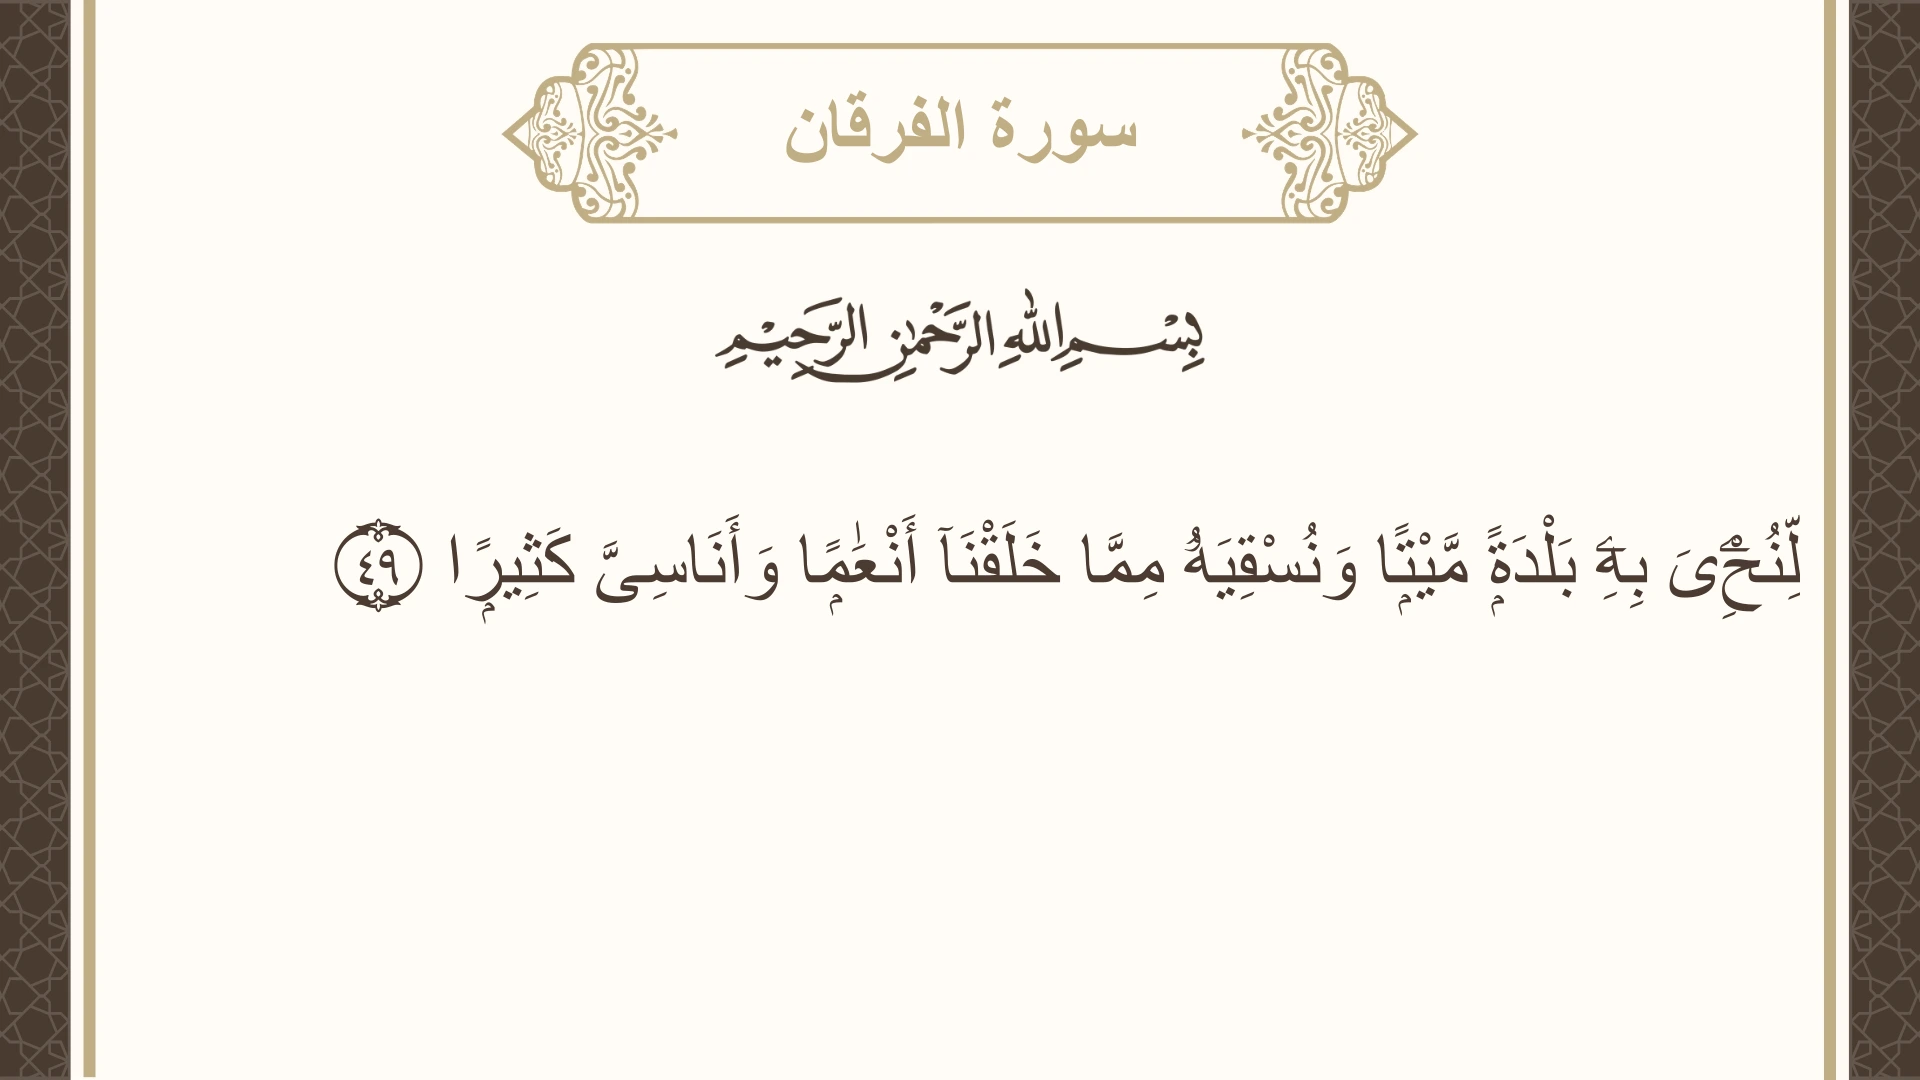 سورة الفرقان
بِسْمِ اللهِ الرَّحْمٰنِ الرَّحِيْمِ
لِّنُحْـِۧىَ بِهِۦ بَلْدَةًۭ مَّيْتًۭا وَنُسْقِيَهُۥ مِمَّا خَلَقْنَآ أَنْعَـٰمًۭا وَأَنَاسِىَّ كَثِيرًۭا ٤٩